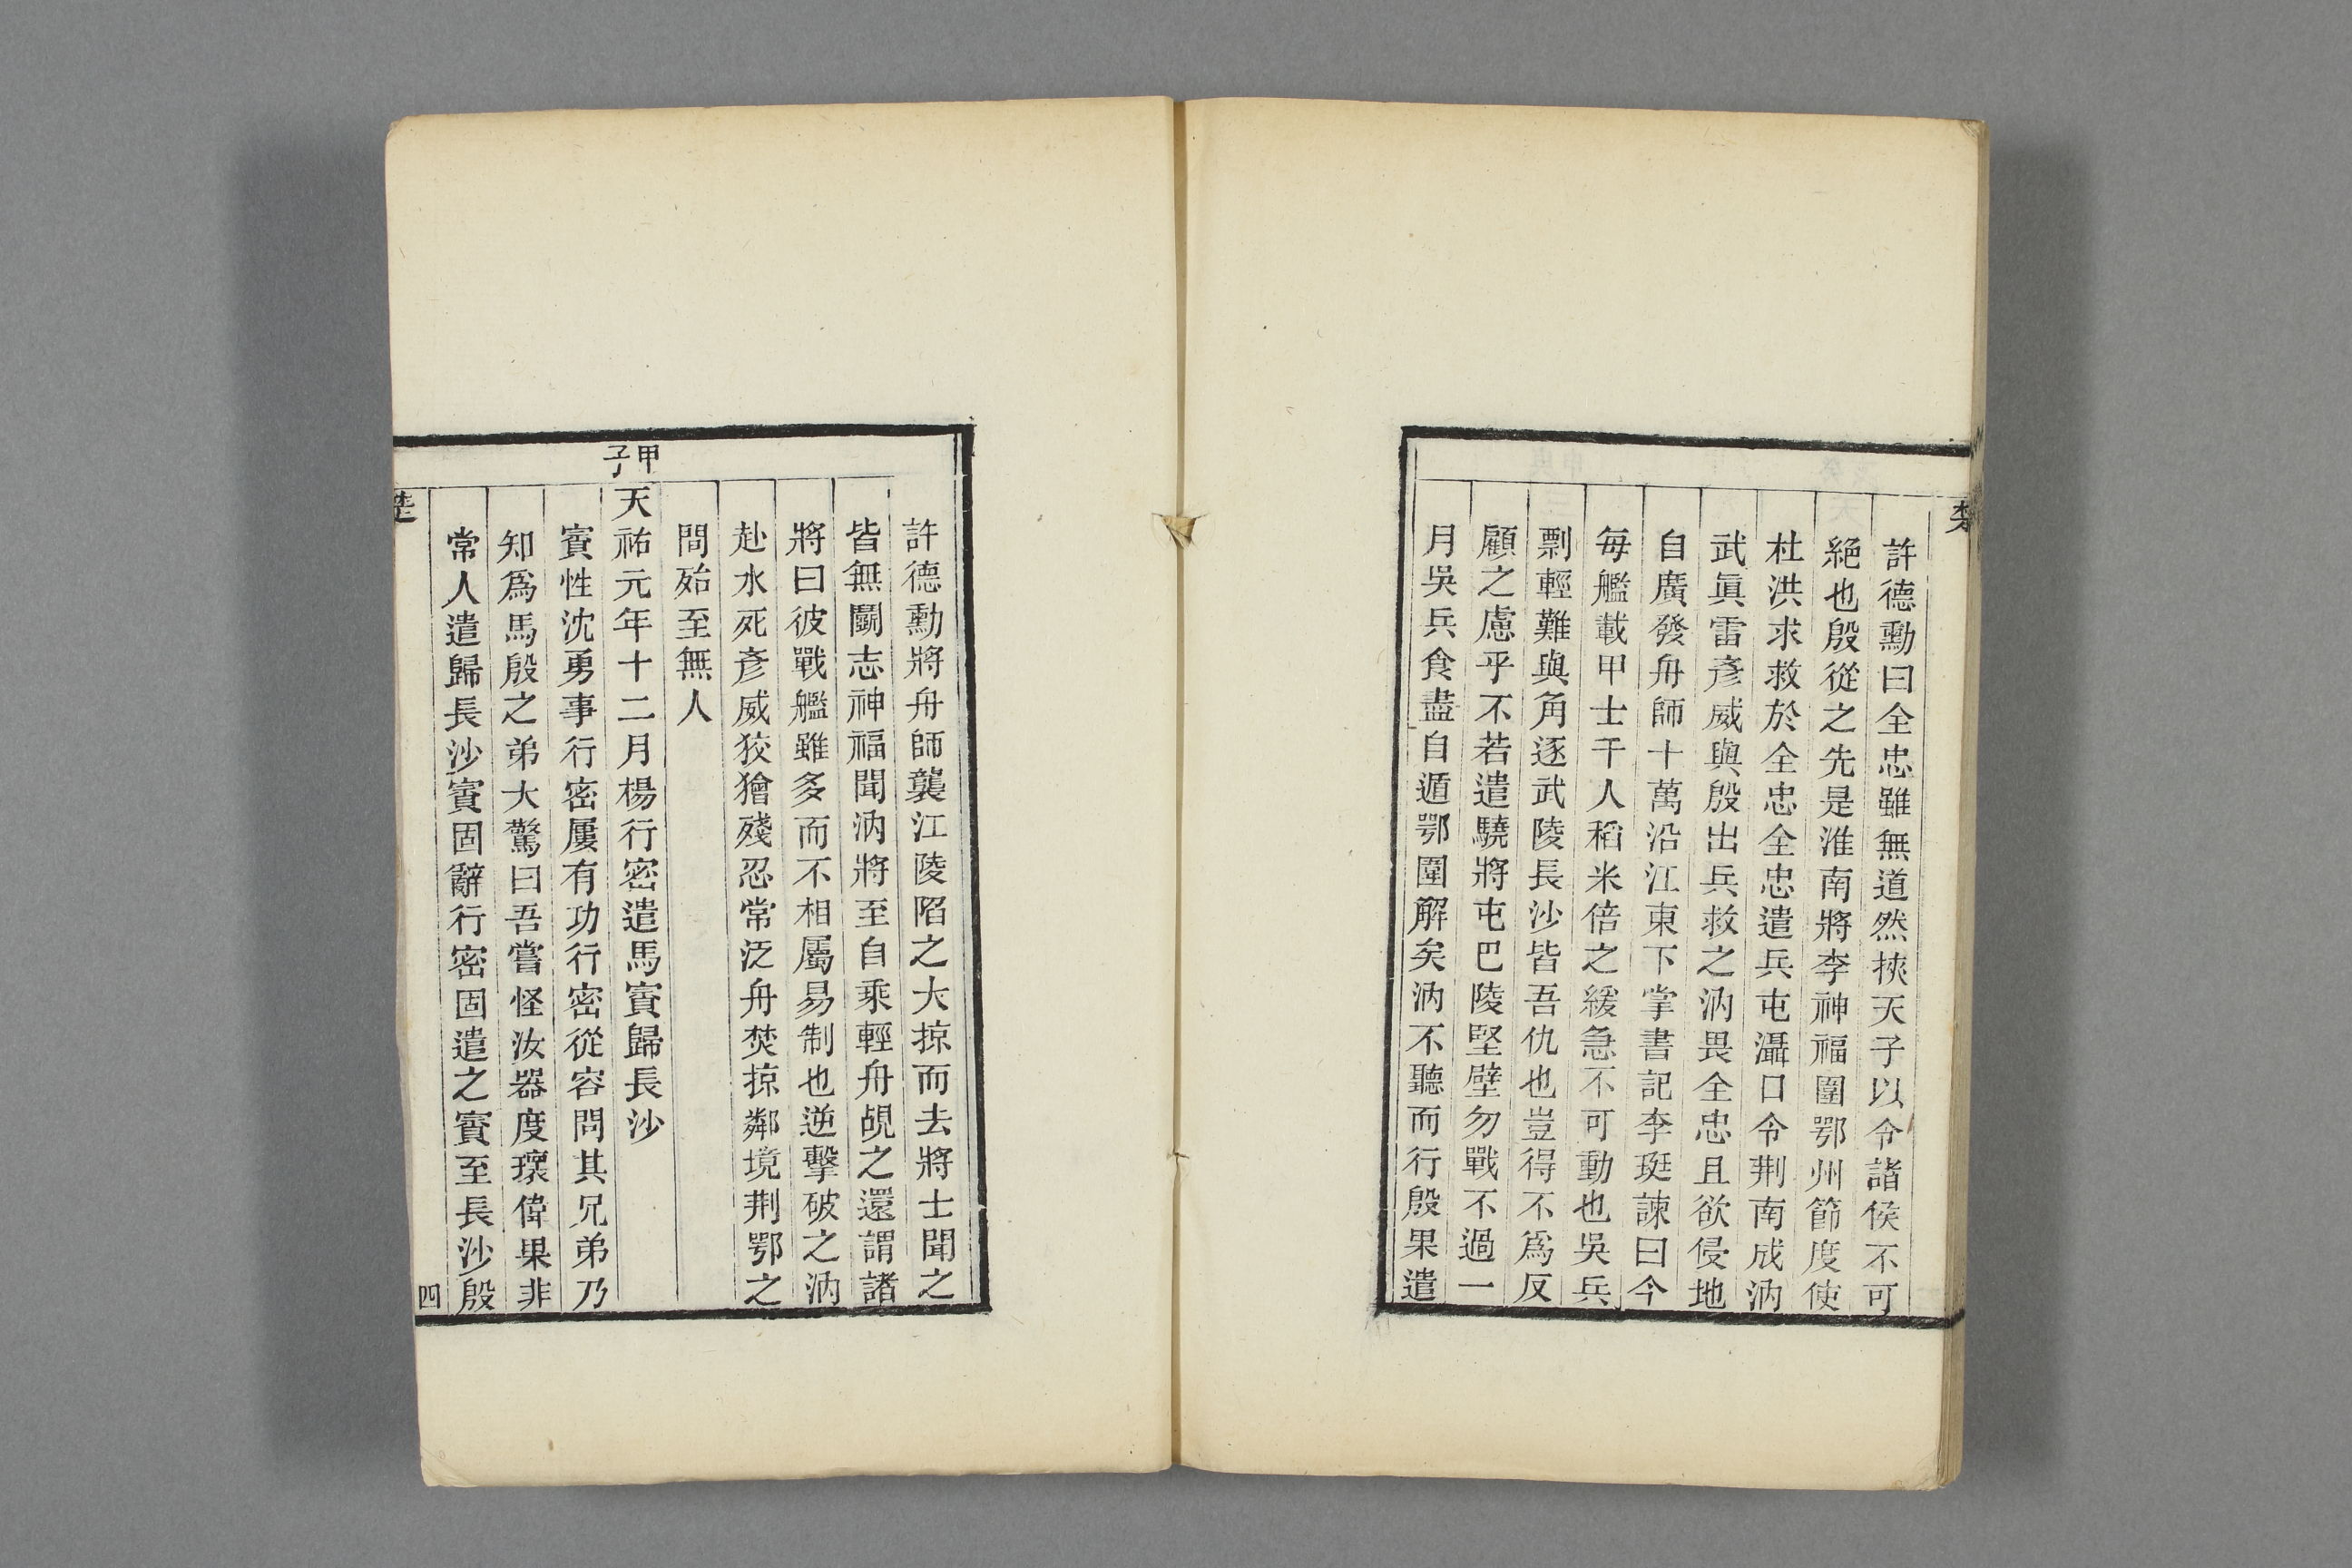 楚
許德勳曰全忠雖無道然挾天子以令諸侯不可
絕也殷從之先是淮南將李神福圍鄂州節度使
杜洪求救於全忠全忠遣兵屯灄口令荆南成汭
武眞雷彥威與殷出兵救之汭畏全忠且欲侵地
自廣發舟師十萬沿江東下掌書記李珽諫曰今
每艦載甲士千人稻米倍之緩急不可動也吳兵
剽輕難與角逐武陵長沙皆吾仇也豈得不爲反
顧之慮乎不若遣驍將屯巴陵堅壁勿戰不過一
月吳兵食盡自遁鄂圍解矣汭不聽而行殷果遣
許德勳將舟師襲江陵陷之大掠而去將士聞之
皆無鬭志神福聞汭將至自乘輕舟覘之還謂諸
將曰彼戰艦雖多而不相屬易制也逆擊破之汭
赴水死彥威狡獪殘忍常泛舟焚掠鄰境荆鄂之
間殆至無人
甲子
天祐元年十二月楊行密遣馬賨歸長沙
賨性沈勇事行密屢有功行密從容問其兄弟乃
知爲馬殷之弟大驚曰吾嘗怪汝器度瓌偉果非
常人遣歸長沙賨固辭行密固遣之賨至長沙殷
楚
四